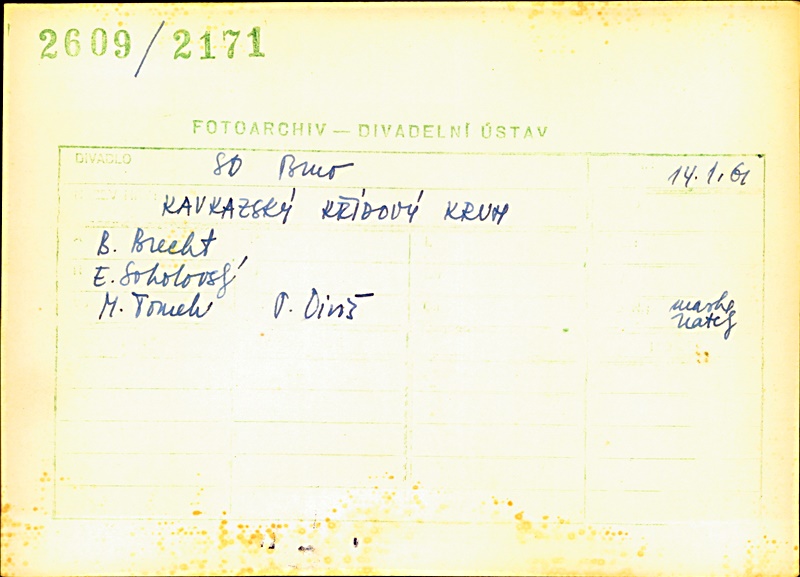 2609/2171
FOTOARCHIV — DIVADELNÍ ÚSTAV
DIVADLO SD Brno 14.1.61
KAVKAZSKÝ KŘÍDOVÝ KRUH
B. Brecht
E. Sokolovský
M. Tomek P. Diviš